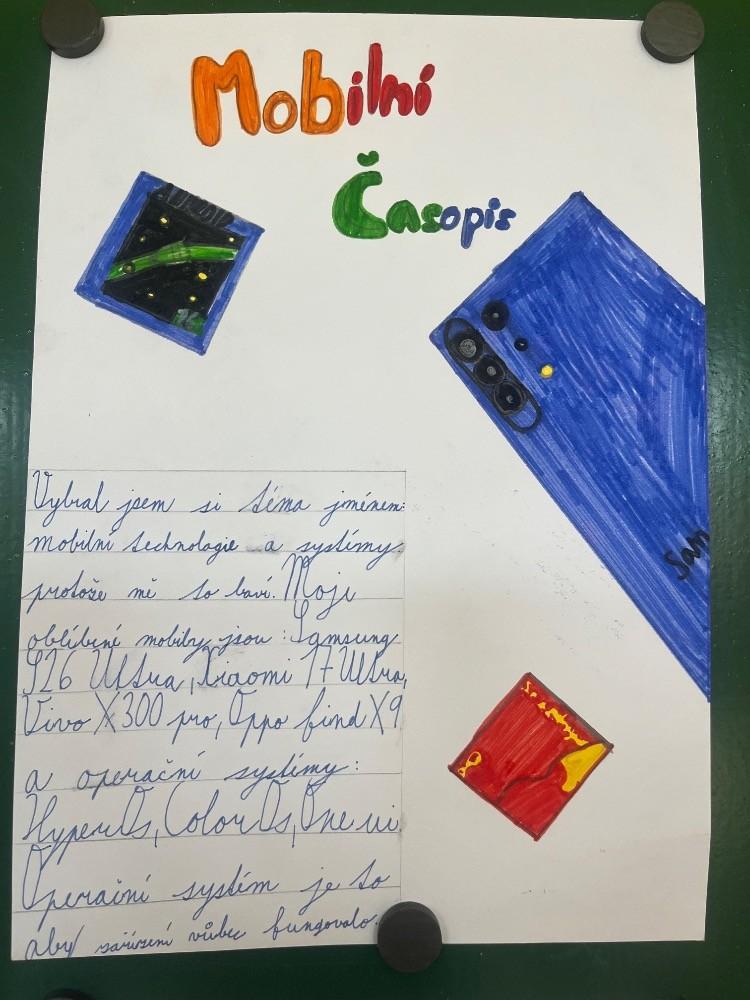 Mobilní
Časopis
Sam
Vybral jsem si téma jménem:
mobilní technologie a systémy
protože mě to baví. Moje
oblíbené mobily jsou: Samsung
S26 Ultra, Xiaomi 17 Ultra,
Vivo X300 pro, Oppo find X9
a operační systémy:
HyperOs, ColorOs, One ui.
Operační systém je to
aby zařízení vůbec fungovalo.